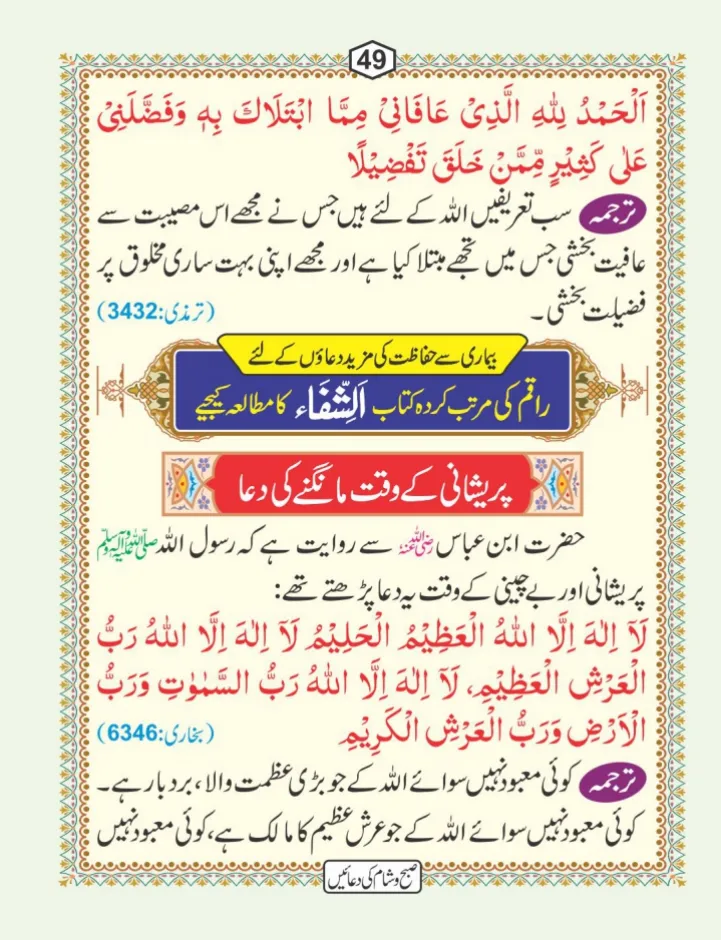 49
اَلْحَمْدُ لِلّٰهِ الَّذِیْ عَافَانِیْ مِمَّا ابْتَلَاكَ بِهٖ وَفَضَّلَنِیْ
عَلٰی كَثِیْرٍ مِّمَّنْ خَلَقَ تَفْضِیْلًا
ترجمہ سب تعریفیں اللہ کے لئے ہیں جس نے مجھے اس مصیبت سے
عافیت بخشی جس میں تجھے مبتلا کیا ہے اور مجھے اپنی بہت ساری مخلوق پر
فضیلت بخشی۔ (ترمذی:3432)
بیماری سے حفاظت کی مزید دعاؤں کے لئے
راقم کی مرتب کردہ کتاب اَلشِّفَاء کا مطالعہ کیجیے
پریشانی کے وقت مانگنے کی دعا
حضرت ابن عباس رضی اللہ عنہ سے روایت ہے کہ رسول اللہ صلی اللہ علیہ وآلہ وسلم
پریشانی اور بے چینی کے وقت یہ دعا پڑھتے تھے:
لَآ اِلٰهَ اِلَّا اللّٰهُ الْعَظِیْمُ الْحَلِیْمُ لَآ اِلٰهَ اِلَّا اللّٰهُ رَبُّ
الْعَرْشِ الْعَظِیْمِ، لَآ اِلٰهَ اِلَّا اللّٰهُ رَبُّ السَّمٰوٰتِ وَرَبُّ
الْاَرْضِ وَرَبُّ الْعَرْشِ الْكَرِیْمِ (بخاری:6346)
ترجمہ کوئی معبود نہیں سوائے اللہ کے جو بڑی عظمت والا، بردبار ہے۔
کوئی معبود نہیں سوائے اللہ کے جو عرش عظیم کا مالک ہے، کوئی معبود نہیں
صبح و شام کی دعائیں